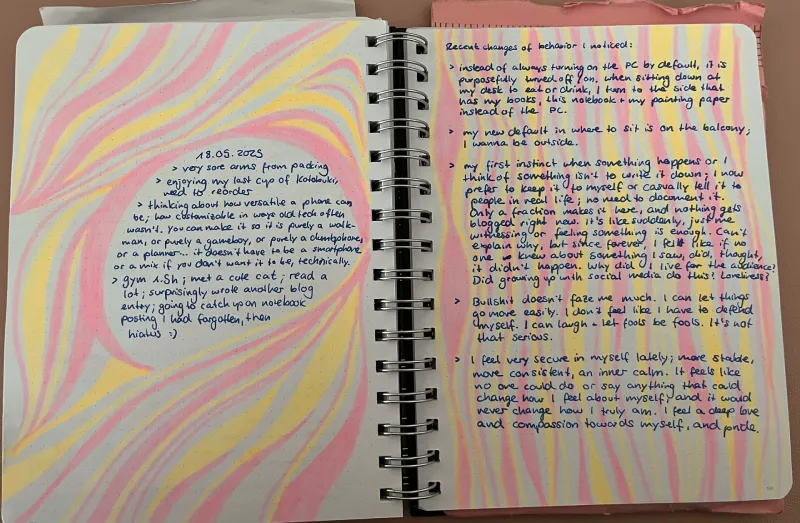 18.05.2025
> very sore arms from packing
> enjoying my last cup of Kotobuki,
need to reorder
> thinking about how versatile a phone can
be; how customizable in ways old tech often
wasn't. You can make it so it is purely a walk-
man, or purely a gameboy, or purely a dumbphone,
or a planner... it doesn't have to be a smartphone
or a mix if you don't want it to be, technically.
> gym 1.5h; met a cute cat; read a
lot; surprisingly wrote another blog
entry; going to catch up on notebook
posting I had forgotten, then
hiatus :)
Recent changes of behavior I noticed:
> instead of always turning on the PC by default, it is
purposefully turned off/on. when sitting down at
my desk to eat or drink, I turn to the side that
has my books, this notebook + my painting paper
instead of the PC.
> my new default in where to sit is on the balcony;
I wanna be outside.
> my first instinct when something happens or I
think of something isn't to write it down; I now
prefer to keep it to myself or casually tell it to
people in real life; no need to document it.
Only a fraction makes it here, and nothing gets
blogged right now. It's like suddenly, just me
witnessing or feeling something is enough. Can't
explain why, but since forever, I felt like if no
one knew about something I saw, did, thought,
it didn't happen. Why did I live for the audience?
Did growing up with social media do this? Loneliness?
> Bullshit doesn't faze me much. I can let things
go more easily. I don't feel like I have to defend
myself. I can laugh + let fools be fools. It's not
that serious.
> I feel very secure in myself lately; more stable,
more consistent, an inner calm. It feels like
no one could do or say anything that could
change how I feel about myself, and it would
never change how I truly am. I feel a deep love
and compassion towards myself, and pride.